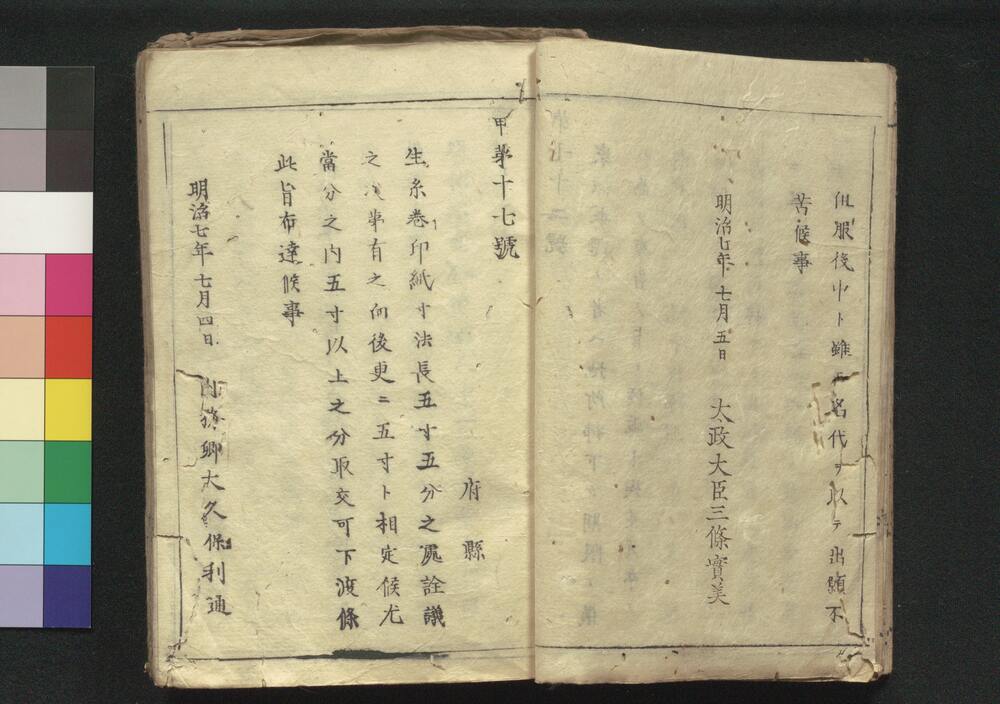 但服後中ト雖モ名代ヲ以テ出願不
苦候事
明治七年七月五日 太政大臣三條實美
甲第十七號
府縣
生糸巻印紙寸法長五寸五分之處詮議
之次第有之向後更ニ五寸ト相定候尤
當分之内五寸以上之分取交可下渡條
此旨布達候事
明治七年七月四日 内務卿大久保利通